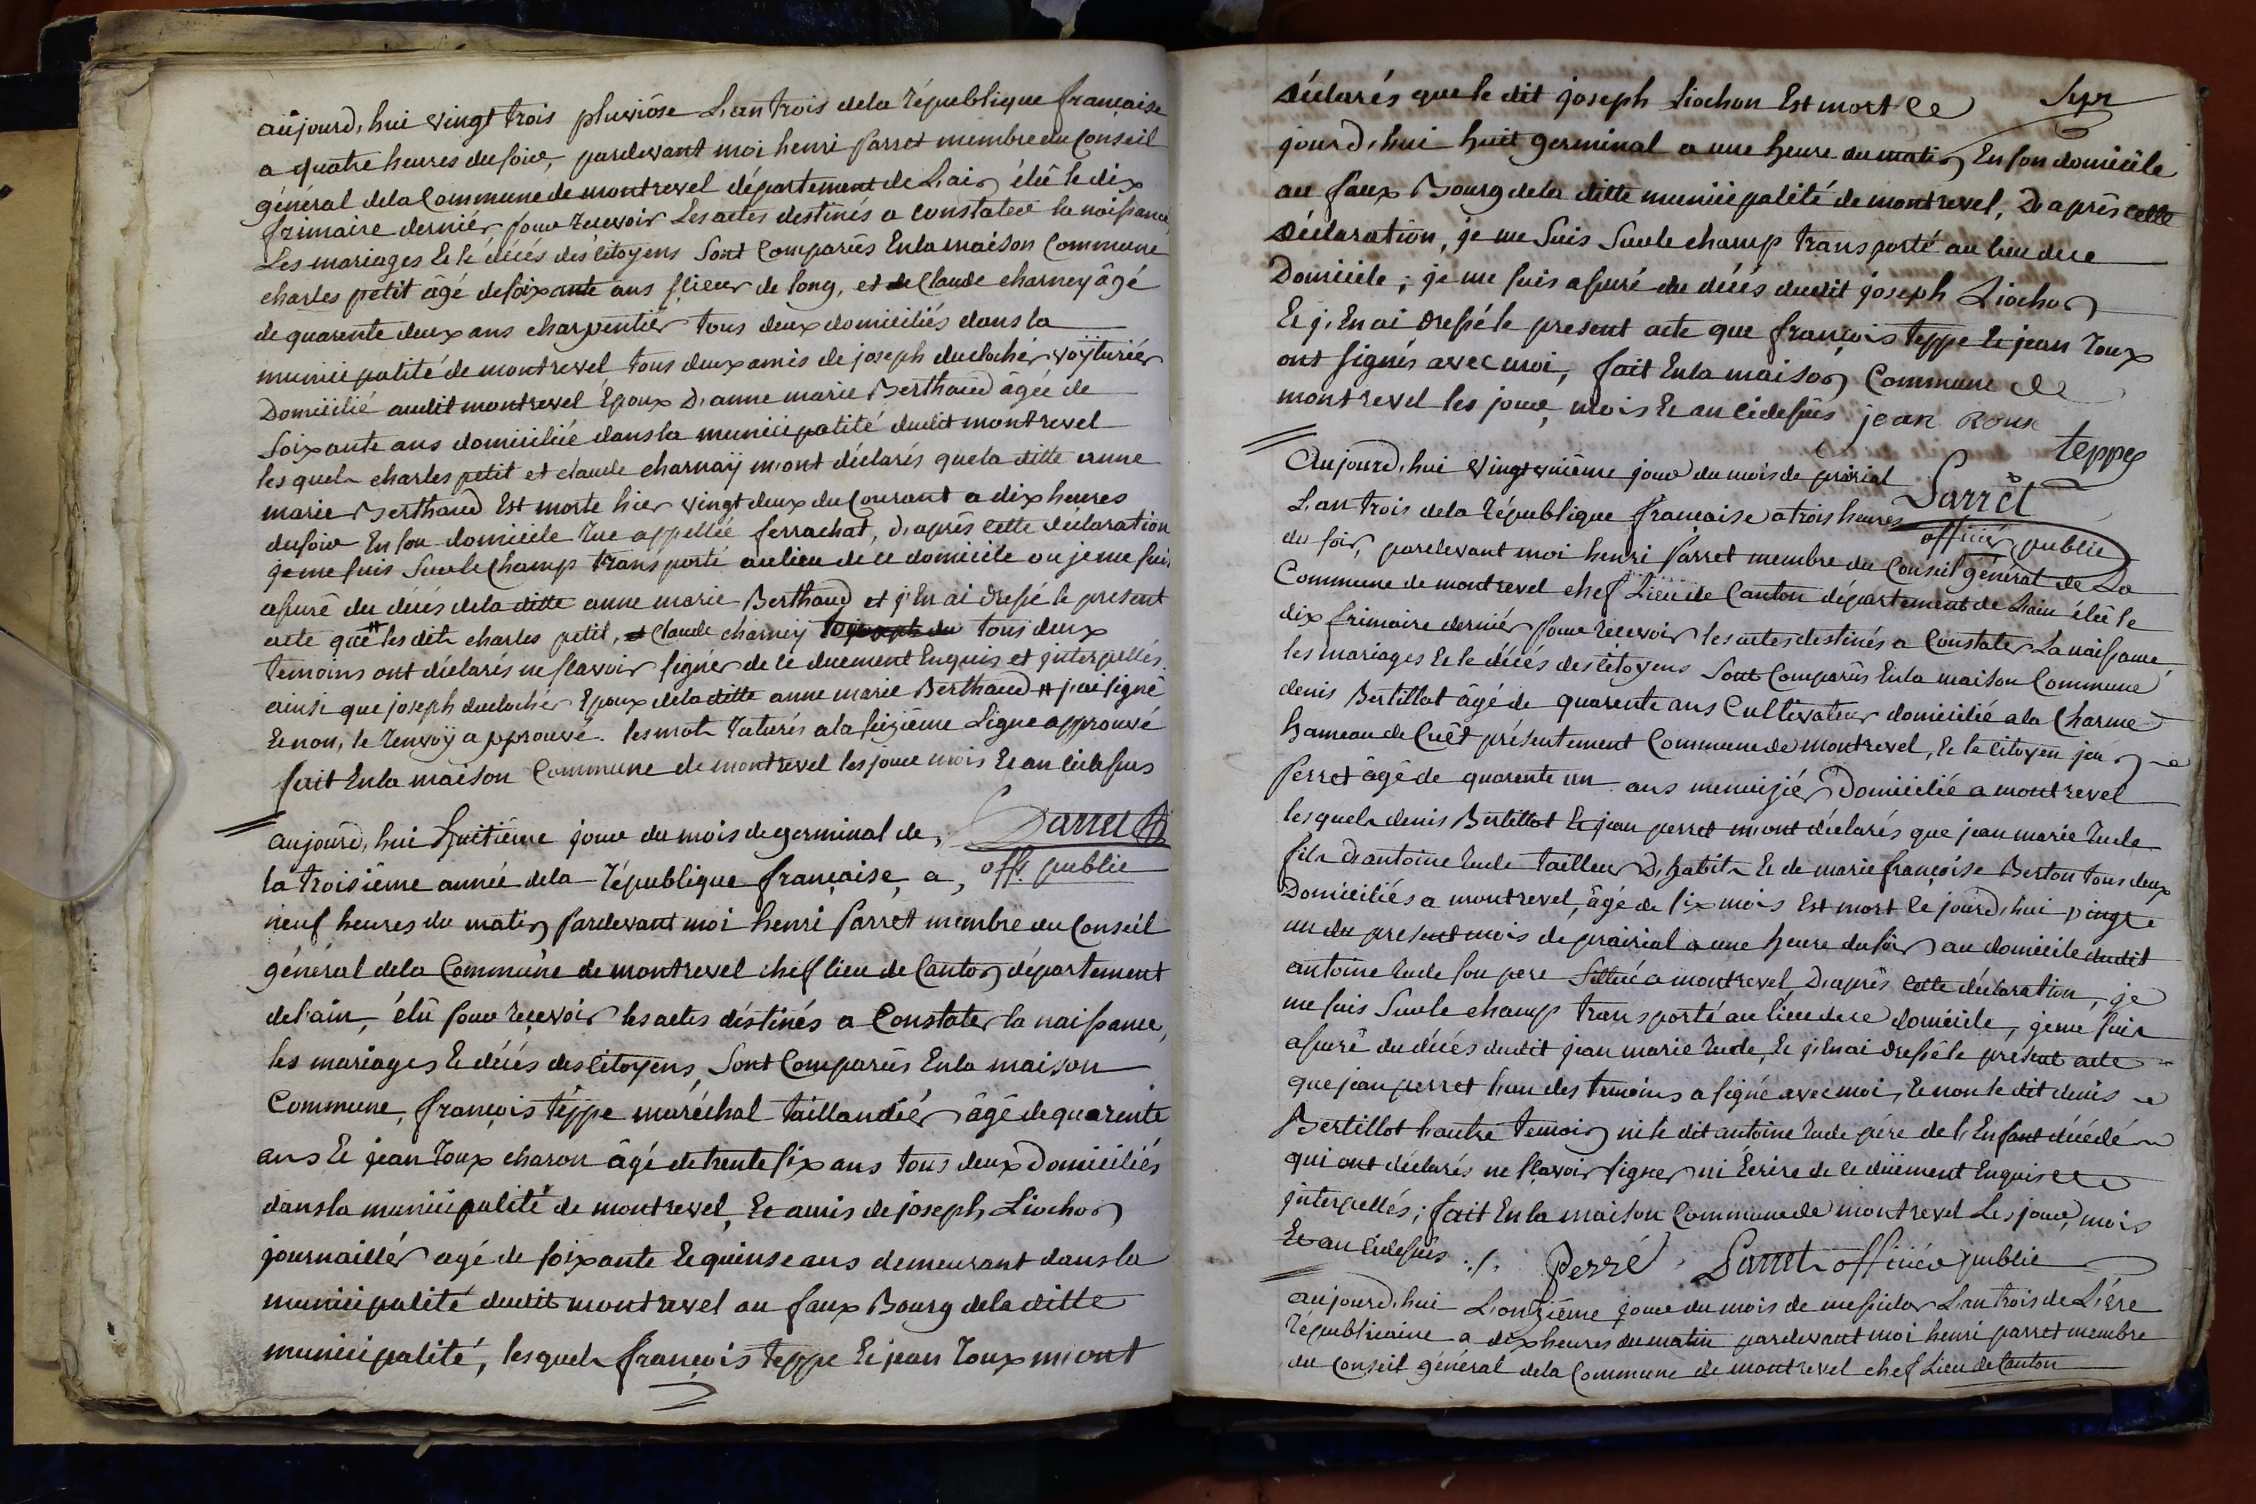 aujourd'hui vingt trois pluviôse L'an trois dela république francaise
a quatre heures du soir, pardevant moi henri Parret membre du Conseil
général dela Commune de montrevel département de L'ain élû le dix
frimaire derniér pour recevoir Les actes destinés a constater la naissance,
Les mariages Et le décés des citoyens Sont Comparûs En la maison Commune
charles petit âgé de soixante ans scieur de long, et de Claude charney âgé
de quarente deux ans charpentiér tous deux domiciliés dans la
municipalité de montrevel tous deux amis de joseph duclocher voÿturiér
Domicilié audit montrevel Epoux D'anne marie Berthaud âgée de
Soixante ans domiciliée dans la municipalité dudit montrevel
lesquels charles petit et claude charnaÿ m'ont déclarés que la ditte anne
marie Berthaud Est morte hier vingt deux du Courant a dix heures
du soir En son domicile Rue appellée ferrachat, d'aprés cette déclaration
je me suis Sur le Champ transporté au lieu de ce domicile ou je me suis
assuré du décés dela ditte anne marie Berthaud et j'En ai dressé le present
acte que # les dits charles petit, et Claude charney tous deux
temoins ont déclarés ne scavoir signér de ce duement Enquis et jnterpellés.
ainsi que joseph duclocher Epoux dela ditte anne marie Berthaud # j'ai signé
Et non, le renvoÿ approuvé. les mots raturés a la seizième Ligne approuvé
fait En la maison Commune de montrevel les jour mois Et an ci dessus
Parret
off. public
aujourd'hui huitiême jour du mois de germinal de,
la troisiême année dela république française, a,
neuf heures du matin pardevant moi henri Parret membre du Conseil
général dela Commune de montrevel chef lieu de Canton département
de l'ain, élû pour reçevoir les actes déstinés a Constater la naissance,
les mariages Et décés des Citoyens, Sont Comparûs En la maison
Commune, françois teppe maréchal taillandiér âgé de quarente
ans Et jean Roux charon âgé de trente six ans tous deux Domiciliés
dans la municipalité de montrevel, Et amis de joseph Liochon
journaillér agé de soixante Et quinse ans demeurant dans la
municipalité dudit montrevel au faux Bourg dela ditte
municipalité, lesquels françois teppe Et jean Roux m'ont
déclarés que le dit joseph Liochon Est mort Ce
jourd'hui huit germinal a une heure du matin En son domicile
au faux Bourg dela ditte municipalité de montrevel, D'aprés cette
déclaration, je me Suis Sur le champ transporté au lieu de ce
Domicile; je me suis assuré du décés dudit joseph Liochon
Et j'En ai dressé le present acte que françois teppe Et jean Roux
ont signés avec moi, fait En la maison Commune de
montrevel les jour, mois Et an ci dessus jean Roux
teppe
Parret
officiér public
Aujourd'hui vingt uniême jour du mois de prairial
L'an trois dela république francaise a trois heures
du soir, pardevant moi henri Parret membre du Conseil général de La
Commune de montrevel chef Lieu de Canton département de L'ain élû le
dix frimaire derniér pour recevoir les actes destinés a Constater La naissance,
les mariages Et le décés des Citoyens Sont Comparûs En la maison Commune
denis Bertillot âgé de quarente ans Cultivateur domicilié a la Charme
hameau de Cuêt présentement Commune de montrevel, Et le Citoyen jean
Perret âgé de quarente un ans menuisiér Domicilié a montrevel
lesquels denis Bertillot Et jean perret m'ont déclarés que jean marie Rude
fils d'antoine Rude tailleur D'habits Et de marie françoise Berton tous deux
Domiciliés a montrevel, âgé de six mois Est mort Ce jourd'hui vingt
un du present mois de prairial a une heure du soir au domicile dudit
antoine Rude son pere Sittué a montrevel, D'aprés cette déclaration, je
me suis Sur le champ transporté au lieu de ce domicile, je me suis
assuré du décés dudit jean marie Rude, Et j'En ai dressé le présent acte
que jean perret l'un des temoins a signé avec moi, Et non le dit denis
Bertillot l'autre temoin ni le dit antoine Rude pére de l'Enfant décédé
qui ont déclarés ne sçavoir signer ni Ecrire de ce dûement Enquis et
jnterpellés; fait En la maison Commune de montrevel Les jour, mois
Et an ci dessus ./. Perré Parret officiér public
aujourd'hui L'onziême jour du mois de messidor L'an trois de L'ére
républicaine a dix heures du matin pardevant moi henri parret membre
du Conseil général dela Commune de montrevel chef Lieu de Canton